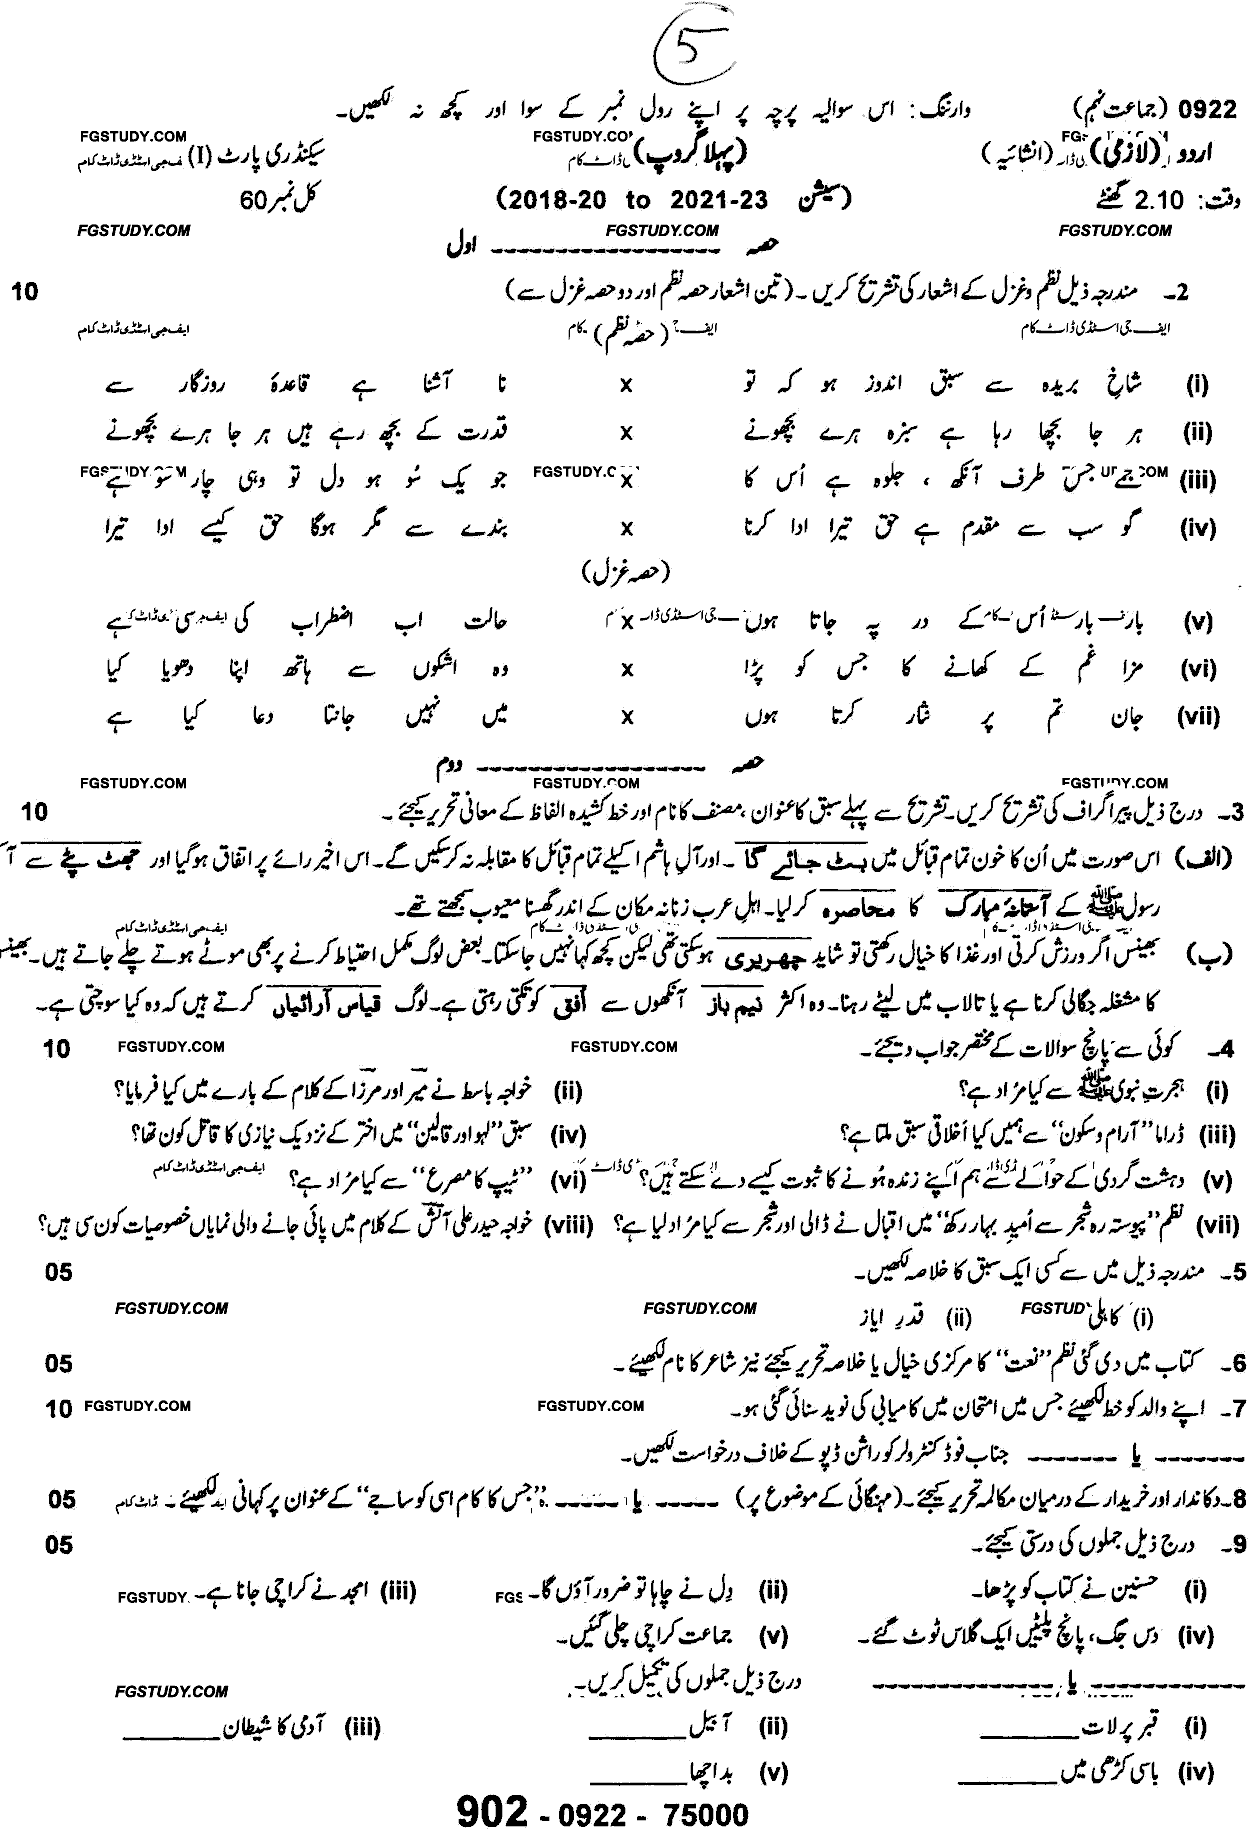 5
0922 (جماعت نہم) وارننگ: اس سوالیہ پرچہ پر اپنے رول نمبر کے سوا اور کچھ نہ لکھیں۔
FGSTUDY.COM
اردو (لازمی) (انشائیہ) (پہلا گروپ) سیکنڈری پارٹ (I) ایف جی اسٹڈی ڈاٹ کام
وقت: 2.10 گھنٹے (سیشن 2018-20 to 2021-23) کل نمبر 60
FGSTUDY.COM FGSTUDY.COM FGSTUDY.COM
حصہ ------------------ اول
2۔ مندرجہ ذیل نظم و غزل کے اشعار کی تشریح کریں ۔ (تین اشعار حصہ نظم اور دو حصہ غزل سے) 10
ایف جی اسٹڈی ڈاٹ کام (حصہ نظم) ایف جی اسٹڈی ڈاٹ کام
(i) شاخِ بریدہ سے سبق اندوز ہو کہ تو x نا آشنا ہے قاعدۂ روزگار سے
(ii) ہر جا بچھا رہا ہے سبزہ ہرے بچھونے x قدرت کے بچھ رہے ہیں ہر جا ہرے بچھونے
(iii) جس طرف آنکھ ، جلوہ ہے اُس کا x جو یک سُو ہو دل تو وہی چار سو ہے
(iv) گو سب سے مقدم ہے حق تیرا ادا کرنا x بندے سے مگر ہوگا حق کیسے ادا تیرا
(حصہ غزل)
(v) بار بار اُس کے در پہ جاتا ہوں x حالت اب اضطراب کی سی ہے
(vi) مزا غم کے کھانے کا جس کو پڑا x وہ اشکوں سے ہاتھ اپنا دھویا کیا
(vii) جان تم پر نثار کرتا ہوں x میں نہیں جانتا دعا کیا ہے
حصہ ------------------ دوم
FGSTUDY.COM FGSTUDY.COM FGSTUDY.COM
3۔ درج ذیل پیراگراف کی تشریح کریں۔ تشریح سے پہلے سبق کا عنوان ، مصنف کا نام اور خط کشیدہ الفاظ کے معانی تحریر کیجئے ۔ 10
(الف) اس صورت میں اُن کا خون تمام قبائل میں بٹ جائے گا ۔ اور آلِ ہاشم اکیلے تمام قبائل کا مقابلہ نہ کر سکیں گے۔ اس اخیر رائے پر اتفاق ہوگیا اور جھٹ پٹے سے آ کر
رسول ﷺ کے آستانۂ مبارک کا محاصرہ کر لیا۔ اہلِ عرب زنانہ مکان کے اندر گھسنا معیوب سمجھتے تھے۔
(ب) بھینس اگر ورزش کرتی اور غذا کا خیال رکھتی تو شاید چھریری ہو سکتی تھی لیکن کچھ کہا نہیں جا سکتا۔ بعض لوگ مکمل احتیاط کرنے پر بھی موٹے ہوتے چلے جاتے ہیں۔ بھینس
کا مشغلہ جگالی کرنا ہے یا تالاب میں لیٹے رہنا۔ وہ اکثر نیم باز آنکھوں سے اُفق کو تکتی رہتی ہے۔ لوگ قیاس آرائیاں کرتے ہیں کہ وہ کیا سوچتی ہے۔
4۔ کوئی سے پانچ سوالات کے مختصر جواب دیجئے۔ FGSTUDY.COM FGSTUDY.COM 10
(i) ہجرتِ نبوی ﷺ سے کیا مُراد ہے؟ (ii) خواجہ باسط نے میر اور مرزا کے کلام کے بارے میں کیا فرمایا؟
(iii) ڈراما ”آرام و سکون“ سے ہمیں کیا اخلاقی سبق ملتا ہے؟ (iv) سبق ”لہو اور قالین“ میں اختر کے نزدیک نیازی کا قاتل کون تھا؟
(v) دہشت گردی کے حوالے سے ہم اپنے زندہ ہونے کا ثبوت کیسے دے سکتے ہیں؟ (vi) ”ٹیپ کا مصرع“ سے کیا مُراد ہے؟ ایف جی اسٹڈی ڈاٹ کام
(vii) نظم ”پیوستہ رہ شجر سے اُمیدِ بہار رکھ“ میں اقبال نے ڈالی اور شجر سے کیا مُراد لیا ہے؟ (viii) خواجہ حیدر علی آتش کے کلام میں پائی جانے والی نمایاں خصوصیات کون سی ہیں؟
5۔ مندرجہ ذیل میں سے کسی ایک سبق کا خلاصہ لکھیں۔ 05
(i) کاہلی (ii) قدرِ ایاز FGSTUDY.COM FGSTUDY.COM
6۔ کتاب میں دی گئی نظم ”نعت“ کا مرکزی خیال یا خلاصہ تحریر کیجئے نیز شاعر کا نام لکھیئے ۔ 05
7۔ اپنے والد کو خط لکھیئے جس میں امتحان میں کامیابی کی نوید سنائی گئی ہو۔ FGSTUDY.COM FGSTUDY.COM 10
------- یا ------- جناب فوڈ کنٹرولر کو راشن ڈپو کے خلاف درخواست لکھیں۔
8۔ دکاندار اور خریدار کے درمیان مکالمہ تحریر کیجئے۔ (مہنگائی کے موضوع پر) ------ یا ------ ”جس کا کام اسی کو ساجے“ کے عنوان پر کہانی لکھیئے ۔ 05
9۔ درج ذیل جملوں کی درستی کیجئے۔ 05
(i) حسنین نے کتاب کو پڑھا۔ (ii) دِل نے چاہا تو ضرور آؤں گا۔ (iii) امجد نے کراچی جانا ہے۔ FGSTUDY
(iv) دس جگ، پانچ پلیٹیں ایک گلاس ٹوٹ گئے۔ (v) جماعت کراچی چلی گئیں۔
------------ یا ------------ درج ذیل جملوں کی تکمیل کریں۔ FGSTUDY.COM
(i) قبر پر لات ________ (ii) آ بیل ________ (iii) آدمی کا شیطان ________
(iv) باسی کڑھی میں ________ (v) بد اچھا ________
902 - 0922 - 75000